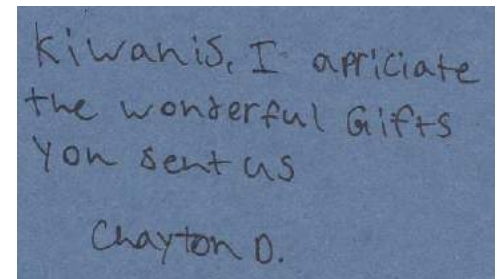 Kiwanis, I apriciate
the wonderful Gifts
you sent us
Chayton D.